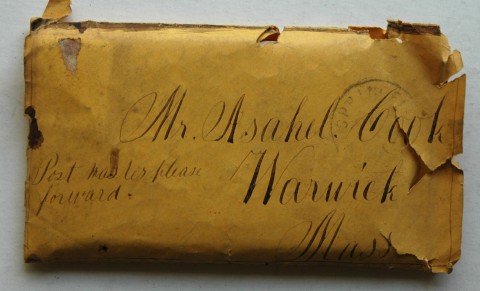 Mr. Asahel. Cook
Post masters please
forward.
Warwick
Mass